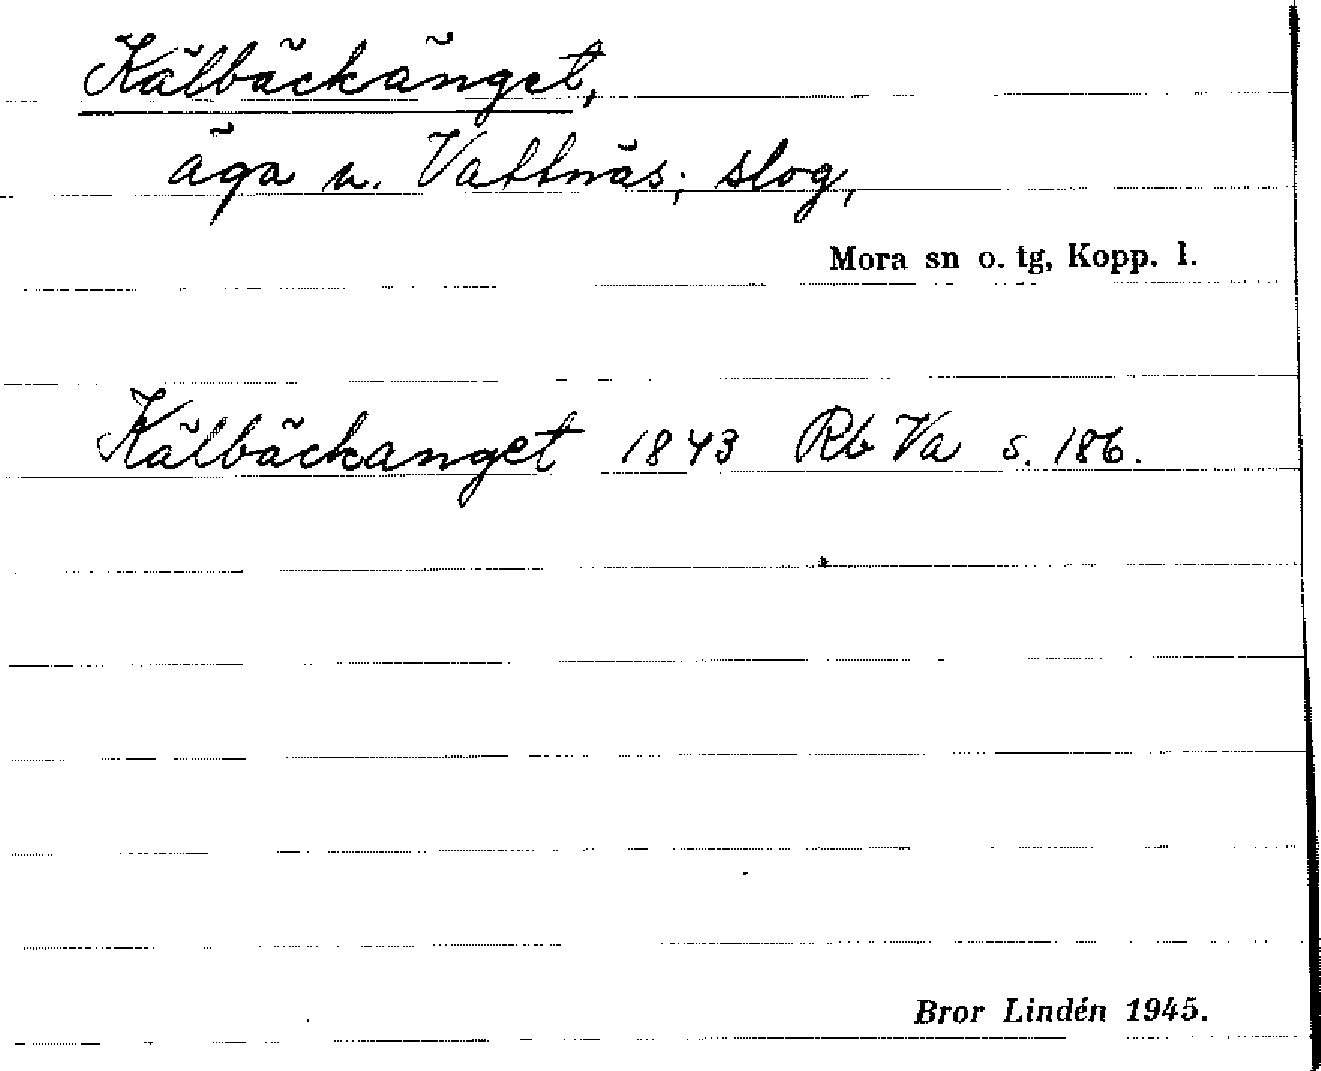 Kälbäckänget,
äga u. Vattnäs; slog,
Mora sn o. tg, Kopp. l.
Kälbäckanget 1843 Rb Va s. 186.
Bror Lindén 1945.